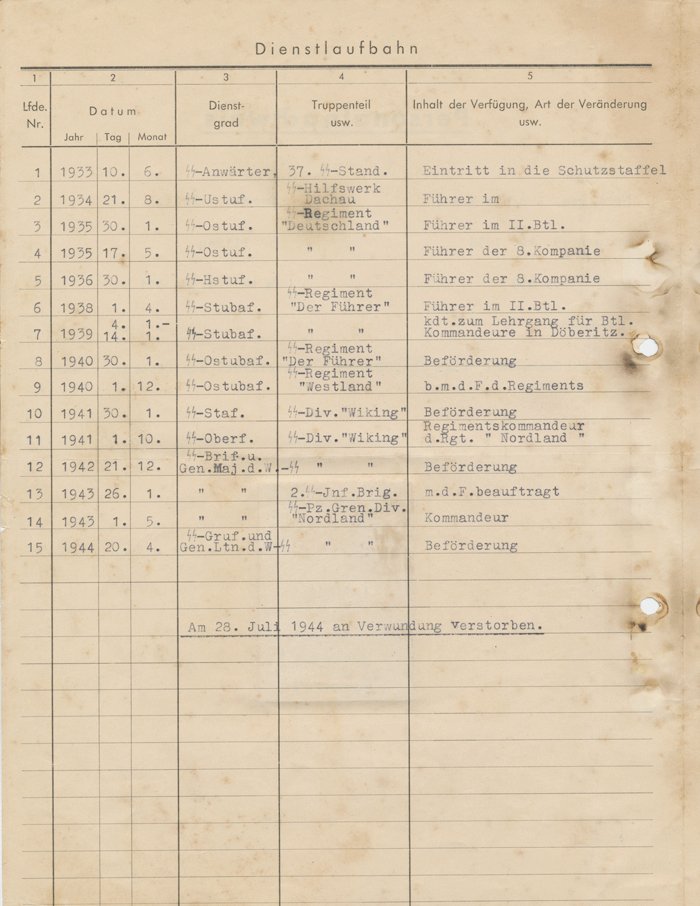 Dienstlaufbahn
1 2 3 4 5
Lfde. Nr. Datum Dienst-grad Truppenteil usw. Inhalt der Verfügung, Art der Veränderung usw.
Jahr Tag Monat
1 1933 10. 6. ᛋᛋ-Anwärter. 37. ᛋᛋ-Stand. Eintritt in die Schutzstaffel
2 1934 21. 8. ᛋᛋ-Ustuf. ᛋᛋ-Hilfswerk Dachau Führer im
3 1935 30. 1. ᛋᛋ-Ostuf. ᛋᛋ-Regiment "Deutschland" Führer im II.Btl.
4 1935 17. 5. ᛋᛋ-Ostuf. " " Führer der 8.Kompanie
5 1936 30. 1. ᛋᛋ-Hstuf. " " Führer der 8.Kompanie
6 1938 1. 4. ᛋᛋ-Stubaf. ᛋᛋ-Regiment "Der Führer" Führer im II.Btl.
7 1939 4. 1.- 14. 1. ᛋᛋ-Stubaf. " " kdt.zum Lehrgang für Btl. Kommandeure in Döberitz.
8 1940 30. 1. ᛋᛋ-Ostubaf. ᛋᛋ-Regiment "Der Führer" Beförderung
9 1940 1. 12. ᛋᛋ-Ostubaf. ᛋᛋ-Regiment "Westland" b.m.d.F.d.Regiments
10 1941 30. 1. ᛋᛋ-Staf. ᛋᛋ-Div."Wiking" Beförderung
11 1941 1. 10. ᛋᛋ-Oberf. ᛋᛋ-Div."Wiking" Regimentskommandeur d.Rgt. " Nordland "
12 1942 21. 12. ᛋᛋ-Brif.u. Gen.Maj.d.W.-ᛋᛋ " " Beförderung
13 1943 26. 1. " " 2.ᛋᛋ-Jnf.Brig. m.d.F.beauftragt
14 1943 1. 5. " " ᛋᛋ-Pz.Gren.Div. "Nordland" Kommandeur
15 1944 20. 4. ᛋᛋ-Gruf.und Gen.Ltn.d.W-ᛋᛋ " " Beförderung
Am 28. Juli 1944 an Verwundung verstorben.